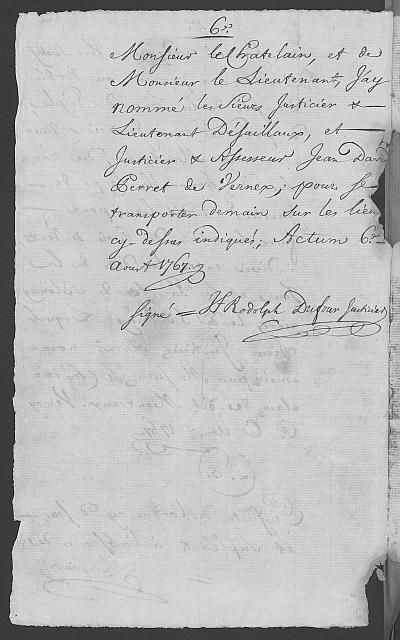 6.e
Monsieur le Chatelain, et de
Monsieur le Lieutenant, Jay
nommé les Sieurs Justicier &
Lieutenant Défaillaux, et
Justicier & Assesseur Jean Davi
Perret de Vernex; pour se
transporter demain sur les lieu
cy-dessus indiqués; Actum 6.e
Aoust 1767.
signé = Rodolph Dufour Justicier